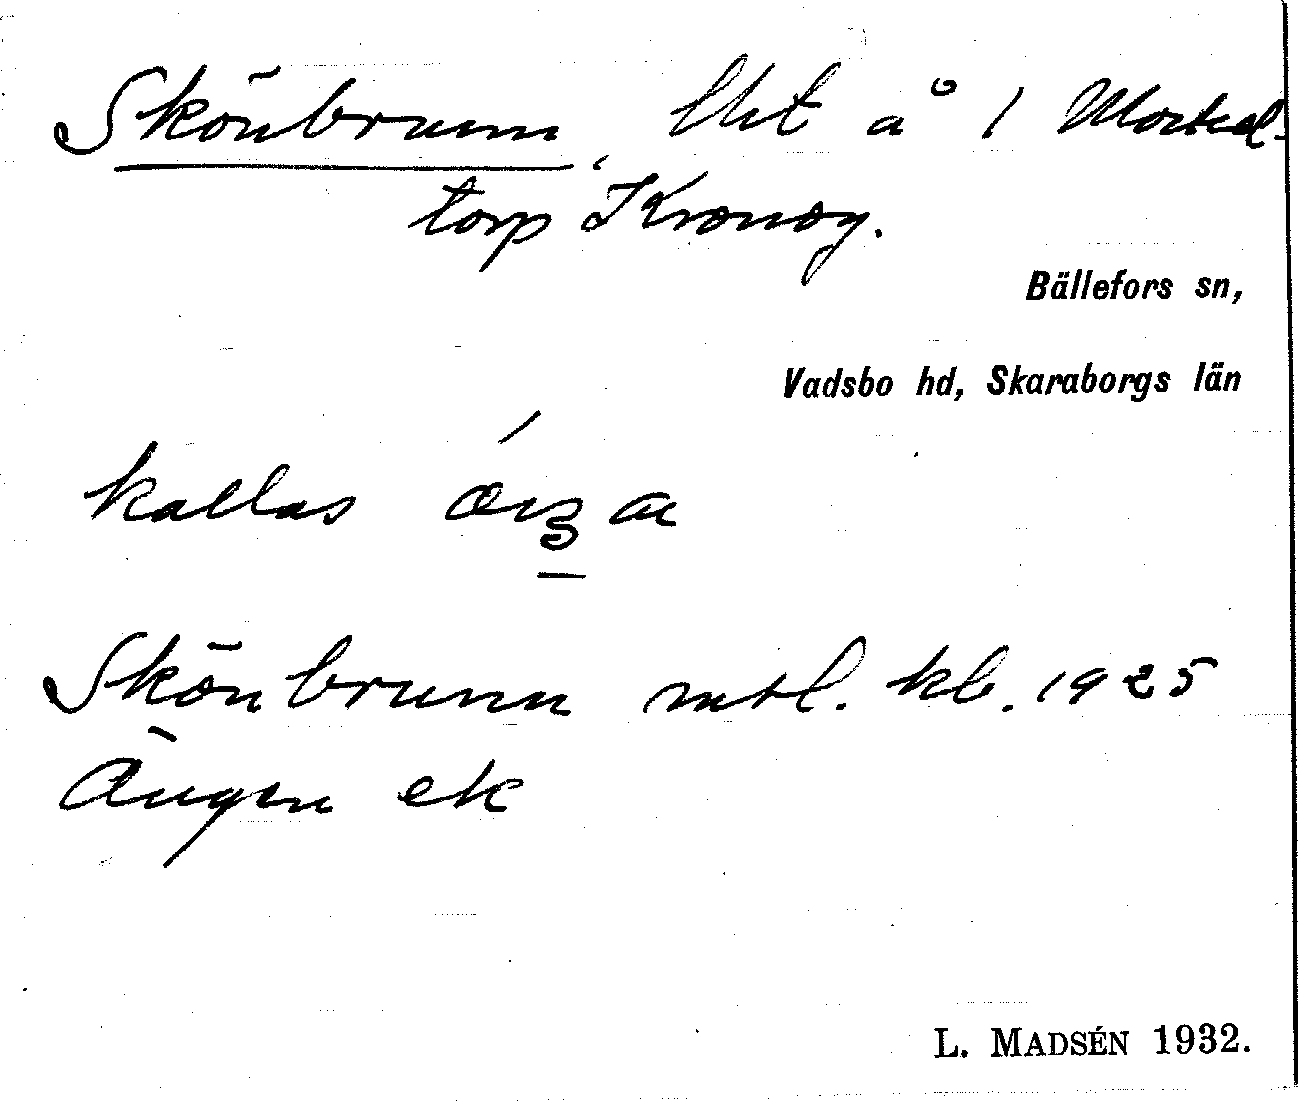 Skönbrunn, lht å 1 Morteml-
torp Kronog.
Bällefors sn,
Vadsbo hd, Skaraborgs län
kallas
Skönbrunn mtl. kb. 1925
Ängen ek
L. MADSÉN 1932.